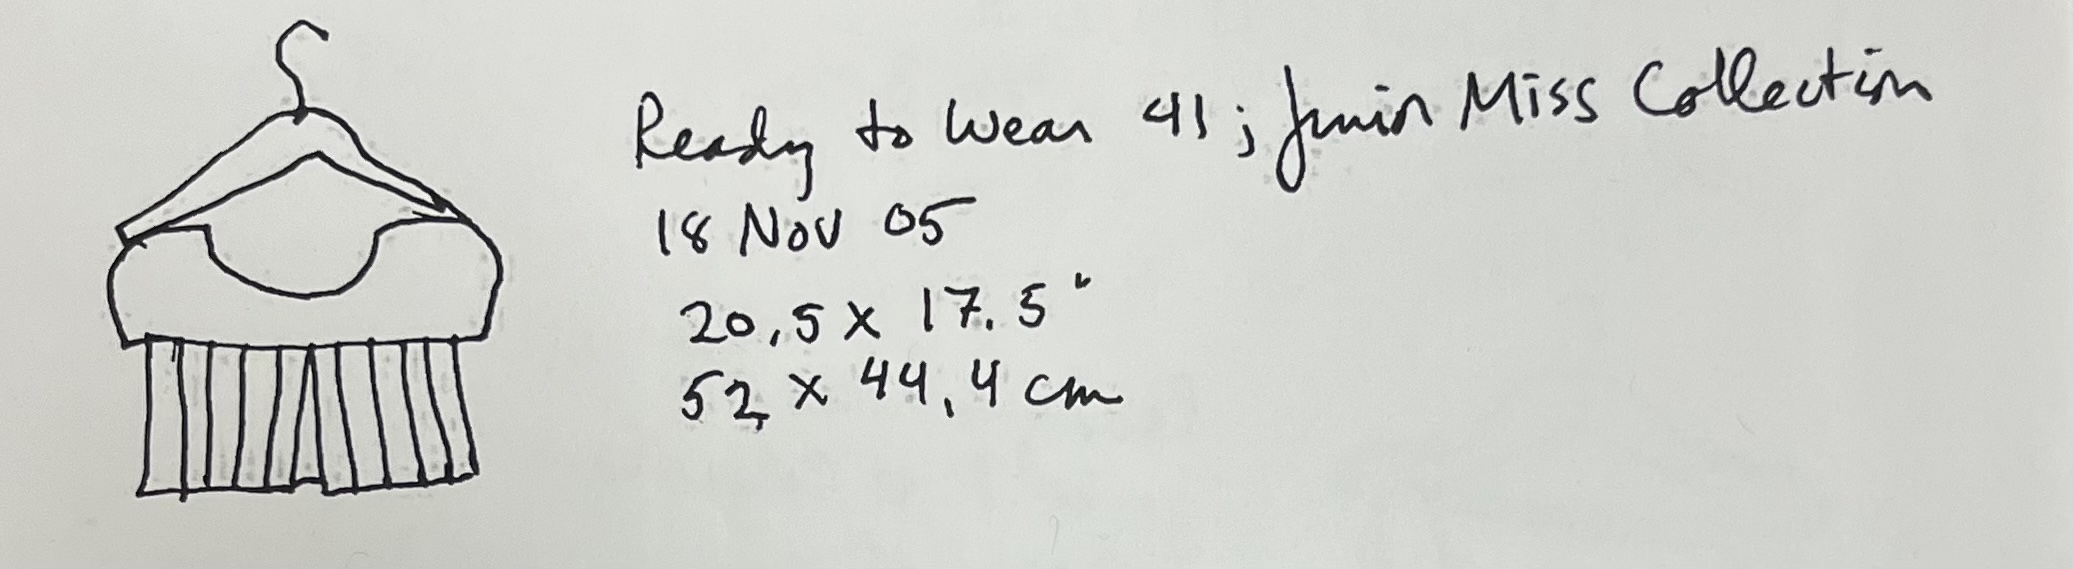 Ready to Wear 41; Junior Miss Collection
18 Nov 05
20.5 x 17.5"
52 x 44.4 cm